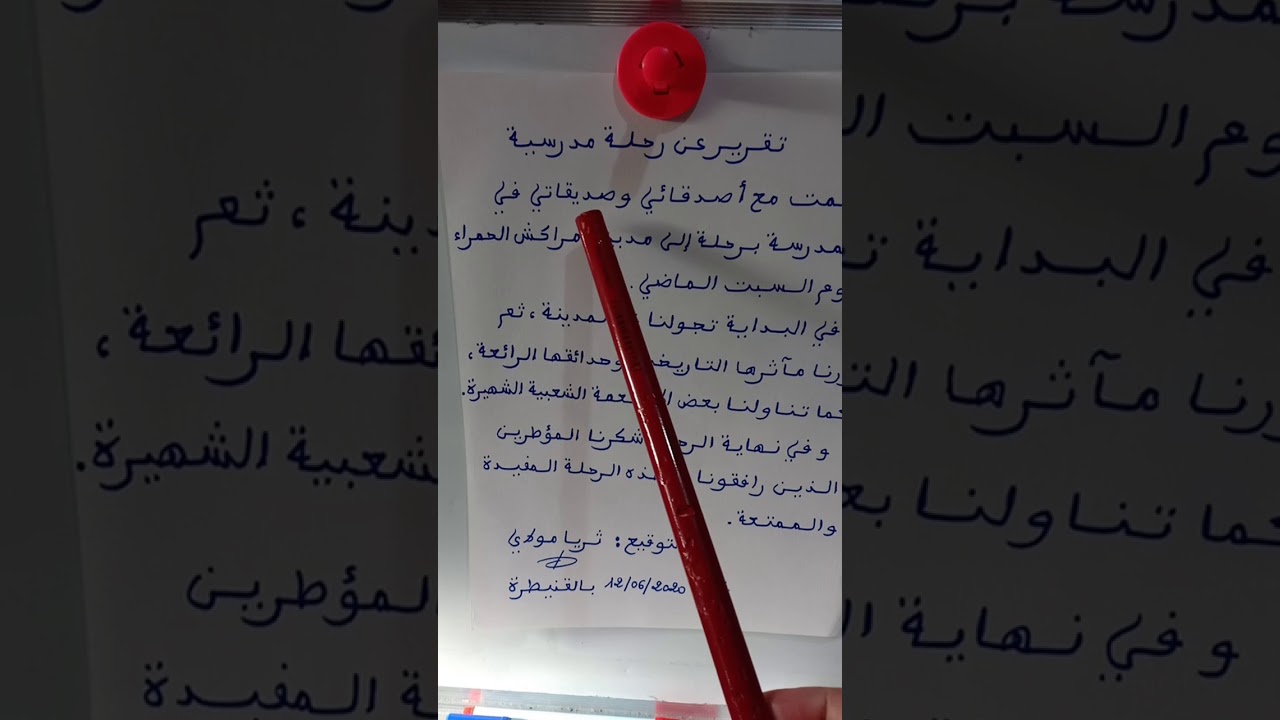 تقرير عن رحلة مدرسية
مت مع أصدقائي وصديقاتي في
مدرسة برحلة إلى مدينة مراكش الحمراء
وم السبت الماضي .
في البداية تجولنا المدينة ، ثم
رنا مآثرها التاريخية وحدائقها الرائعة ،
ما تناولنا بعض الأطعمة الشعبية الشهيرة.
و في نهاية الرحلة شكرنا المؤطرين
الذين رافقونا هذه الرحلة المفيدة
والممتعة .
التوقيع : ثريا مولاي
12/06/2020 بالقنيطرة